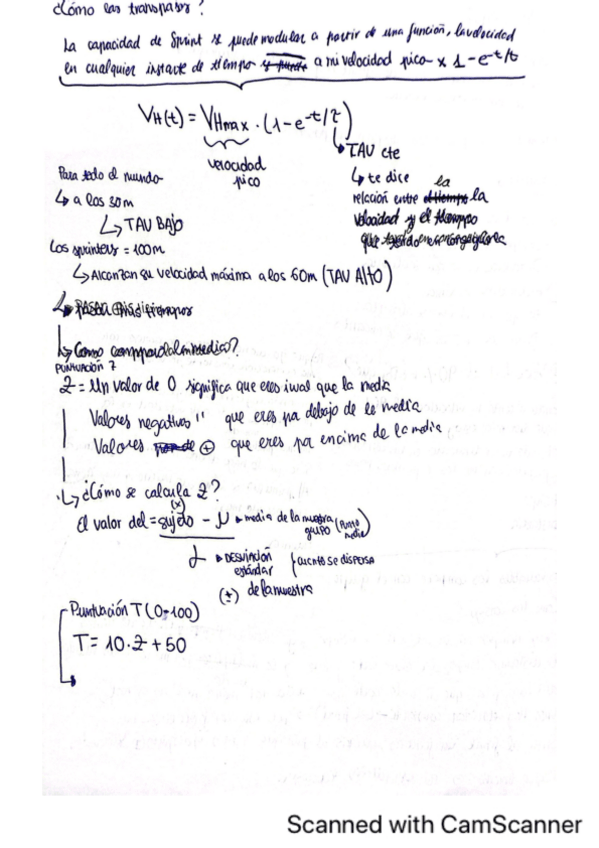 ¿Cómo las transpasas?
La capacidad de Sprint se puede modular a partir de una función, la velocidad
en cualquier instante de tiempo a mi velocidad pico x 1-e^-t/δ
VH(t) = VHmax · (1-e^-t/2)
velocidad
pico
TAU cte
↳ te dice la
relación entre la
velocidad y el tiempo
que
Para todo el mundo
↳ a los 30m
↳ TAU BAJO
Los sprinters = 100m
↳ Alcanzan su velocidad máxima a los 60m (TAU Alto)
↳ Como
PUNTUACIÓN Z
Z = Un valor de 0 significa que eres iwal que la media
Valores negativos " que eres pa debajo de la media
Valores ⊕ que eres por encima de la media
↳ ¿Cómo se calcula Z?
(x)
El valor del = sujeto - μ ▸ media de la muestra (Punto
grupo medio)
▸ DESVIACIÓN
estándar
(±) de la muestra
cuanto se dispersa
Puntuación T (0-100)
T = 10·Z + 50
Scanned with CamScanner